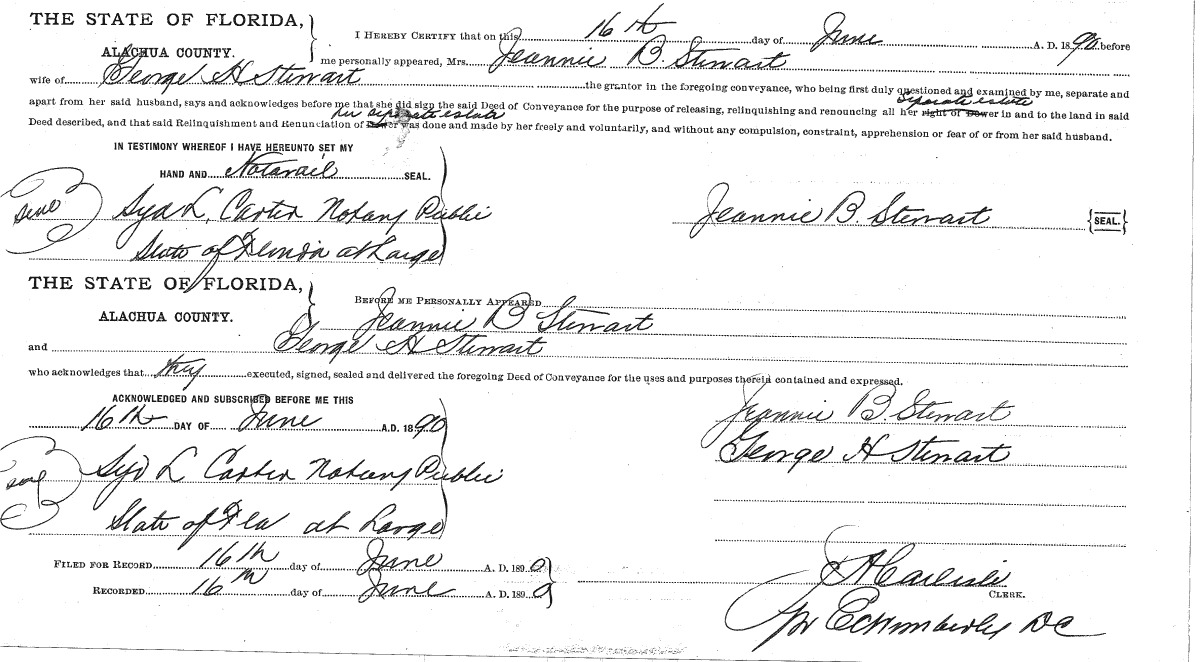 THE STATE OF FLORIDA,
ALACHUA COUNTY.
I HEREBY CERTIFY that on this 16th day of June A. D. 1890 before
me personally appeared, Mrs. Jeannie B. Stewart
wife of George H Stewart the grantor in the foregoing conveyance, who being first duly questioned and examined by me, separate and
apart from her said husband, says and acknowledges before me that she did sign the said Deed of Conveyance for the purpose of releasing, relinquishing and renouncing all her right of Dower separate estate in and to the land in said
Deed described, and that said Relinquishment and Renunciation of Dower her separate estate was done and made by her freely and voluntarily, and without any compulsion, constraint, apprehension or fear of or from her said husband.
IN TESTIMONY WHEREOF I HAVE HEREUNTO SET MY
HAND AND Notarial SEAL.
Seal Syd L. Carter Notary Public
Jeannie B. Stewart {SEAL.}
State of Florida at Large
THE STATE OF FLORIDA,
ALACHUA COUNTY.
BEFORE ME PERSONALLY APPEARED
Jeannie B Stewart
and George H Stewart
who acknowledges that they executed, signed, sealed and delivered the foregoing Deed of Conveyance for the uses and purposes therein contained and expressed.
ACKNOWLEDGED AND SUBSCRIBED BEFORE ME THIS
16th DAY OF June A.D. 1890
Jeannie B. Stewart
George H Stewart
Seal Syd L Carter Notary Public
State of Fla at Large
FILED FOR RECORD 16th day of June A. D. 1890
RECORDED 16th day of June A. D. 1890
Carlisle
CLERK.
pr DC